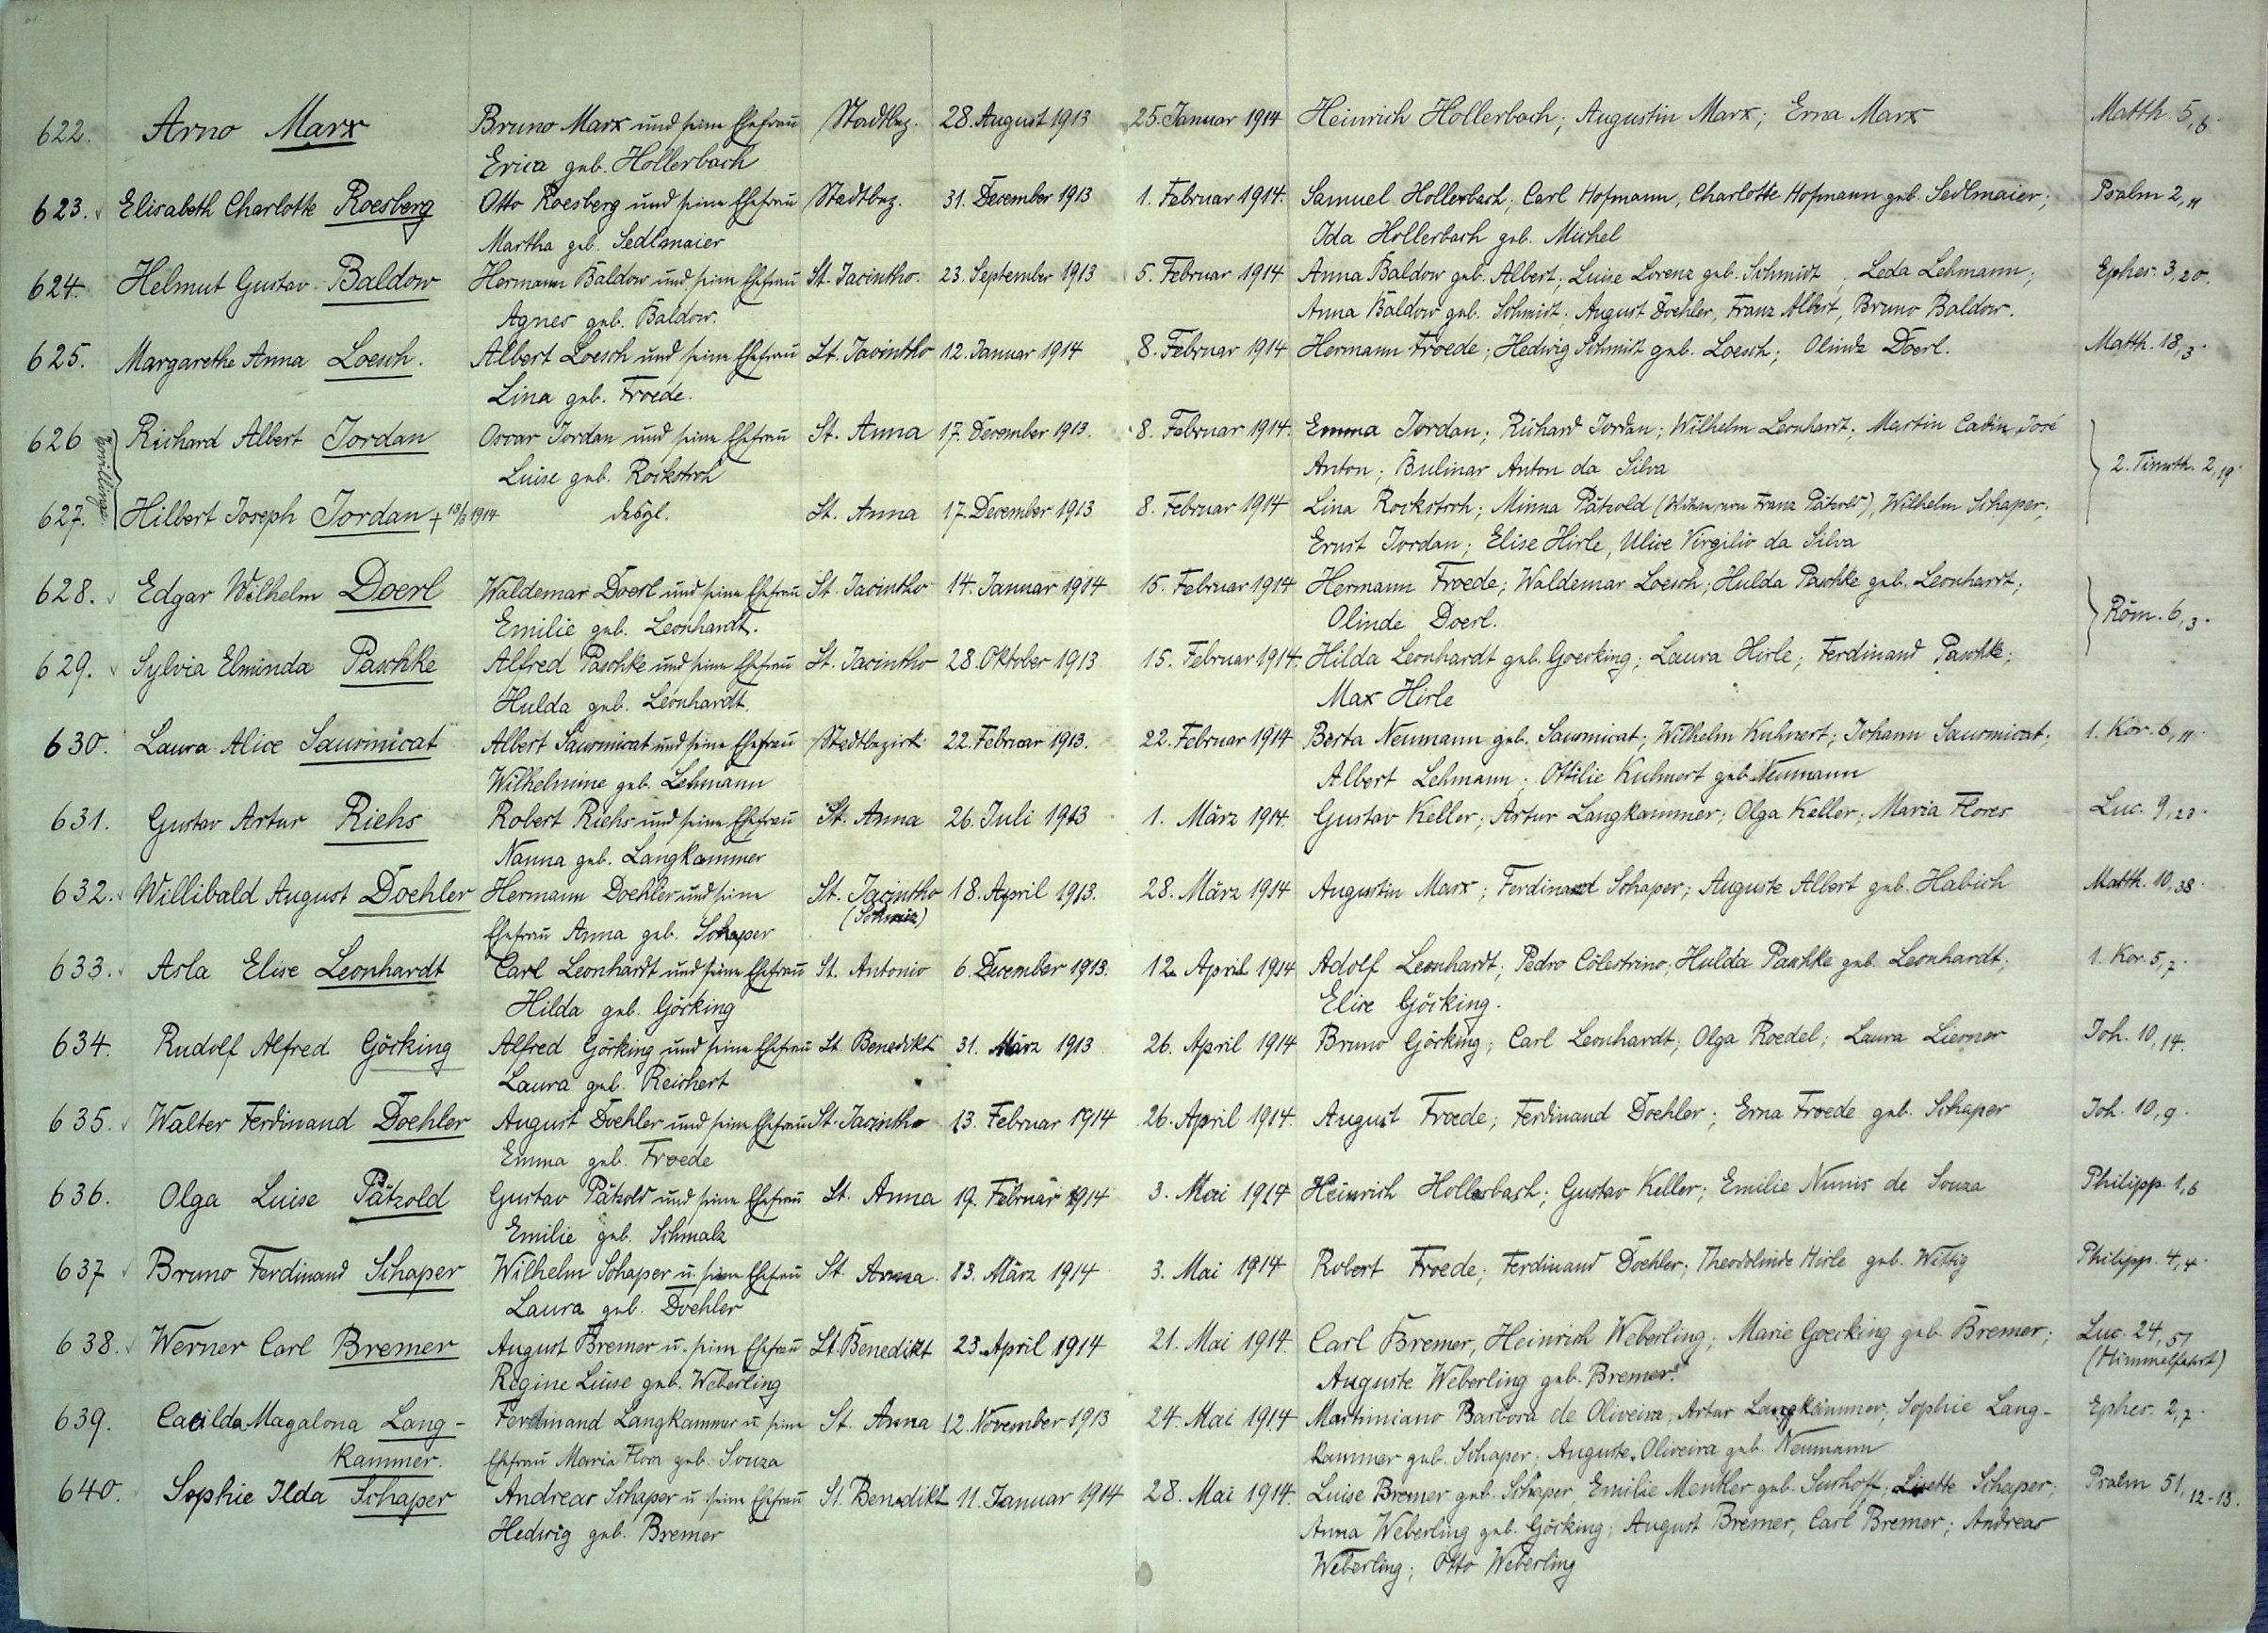 622. Arno Marx Bruno Marx und seine Ehefrau Stadtbez. 28. August 1913 25. Januar 1914 Heinrich Hollerbach; Augustin Marx; Erna Marx Matth. 5,6.
Erica geb. Hollerbach
623. Elisabeth Charlotte Roesberg Otto Roesberg und seine Ehefrau Stadtbez. 31. December 1913 1. Februar 1914. Samuel Hollerbach; Carl Hofmann, Charlotte Hofmann geb. Sedlmaier; Psalm 2,11
Martha geb. Sedlmaier Ida Hollerbach geb. Michel
624. Helmut Gustav Baldow Hermann Baldow und seine Ehefrau St. Jacintho. 23. September 1913 5. Februar 1914 Anna Baldow geb. Albert; Luise Lorenz geb. Schmidt; Leda Lehmann; Ephes. 3,20.
Agnes geb. Baldow. Anna Baldow geb. Schmidt; August Doehler, Franz Albert, Bruno Baldow.
625. Margarethe Anna Loesch. Albert Loesch und seine Ehefrau St. Jacintho 12. Januar 1914 8. Februar 1914 Hermann Froede; Hedwig Schmidt geb. Loesch; Olinde Doerl. Matth. 18,3.
Lina geb. Froede.
626 Zwillinge Richard Albert Jordan Oscar Jordan und seine Ehefrau St. Anna 17. December 1913. 8. Februar 1914. Emma Jordan; Richard Jordan; Wilhelm Leonhardt; Martin Cadin, José
Luise geb. Rockstroh Anton; Bulinar Anton da Silva 2. Timoth. 2,19.
627. Hilbert Joseph Jordan + 13/3 1914 desgl. St. Anna 17. December 1913 8. Februar 1914 Lina Rockstroh; Minna Pätzold (Witwe von Franz Pätzold), Wilhelm Schaper;
Ernst Jordan; Elise Hirle, Ulice Virgilio da Silva
628. Edgar Wilhelm Doerl Waldemar Doerl und seine Ehefrau St. Jacintho 14. Januar 1914 15. Februar 1914 Hermann Froede; Waldemar Loesch; Hulda Paschke geb. Leonhardt;
Emilie geb. Leonhardt. Olinde Doerl. Röm. 6,3.
629. Sylvia Elminda Paschke Alfred Paschke und seine Ehefrau St. Jacintho 28. Oktober 1913 15. Februar 1914. Hilda Leonhardt geb. Goerking; Laura Hirle; Ferdinand Paschke;
Hulda geb. Leonhardt. Max Hirle
630. Laura Alice Saurmicat Albert Saurmicat und seine Ehefrau Stadtbezirk 22. Februar 1913. 22. Februar 1914 Berta Neumann geb. Saurmicat; Wilhelm Kuhnert; Johann Saurmicat; 1. Kor. 6,11.
Wilhelmine geb. Lehmann Albert Lehmann; Ottilie Kuhnert geb. Neumann
631. Gustav Artur Riehs Robert Riehs und seine Ehefrau St. Anna 26. Juli 1913 1. März 1914. Gustav Keller; Artur Langkammer; Olga Keller; Maria Flores Luc. 9,23.
Nanna geb. Langkammer
632. Willibald August Doehler Hermann Doehler und seine St. Jacintho 18. April 1913. 28. März 1914 Augustin Marx; Ferdinand Schaper; Auguste Albert geb. Habich Matth. 10,38.
(Schweiz)
Ehefrau Anna geb. Schaper
633. Asla Elise Leonhardt Carl Leonhardt und seine Ehefrau St. Antonio 6. December 1913. 12. April 1914 Adolf Leonhardt; Pedro Cölestrino; Hulda Paschke geb. Leonhardt; 1. Kor. 5,7.
Hilda geb. Görking Elise Görking.
634. Rudolf Alfred Görking Alfred Görking und seine Ehefrau St. Benedikt 31. März 1913 26. April 1914 Bruno Görking; Carl Leonhardt; Olga Roedel; Laura Liesner Joh. 10,14.
Laura geb. Reichert
635. Walter Ferdinand Doehler August Doehler und seine Ehefrau St. Jacintho 13. Februar 1914 26. April 1914. August Froede; Ferdinand Doehler; Erna Froede geb. Schaper Joh. 10,9.
Emma geb. Froede
636. Olga Luise Pätzold Gustav Pätzold und seine Ehefrau St. Anna 19. Februar 1914 3. Mai 1914 Heinrich Hollerbach; Gustav Keller; Emilie Nunis de Souza Philipp. 1,6
Emilie geb. Schmalz
637 Bruno Ferdinand Schaper Wilhelm Schaper u. seine Ehefrau St. Anna. 13. März 1914 3. Mai 1914 Robert Froede; Ferdinand Doehler; Theodolinde Hirle geb. Wittig Philipp. 4,4.
Laura geb. Doehler
638. Werner Carl Bremer August Bremer u. seine Ehefrau St. Benedikt 23. April 1914 21. Mai 1914. Carl Bremer, Heinrich Weberling; Marie Goerking geb. Bremer; Luc. 24,51
(Himmelfahrt)
Regine Luise geb. Weberling Auguste Weberling geb. Bremer.
639. Cacilda Magalona Lang- Ferdinand Langkammer u. seine St. Anna 12. November 1913 24. Mai 1914 Martimiano Barbosa de Oliveira; Artur Langkammer; Sophie Lang- Ephes. 2,7.
kammer. Ehefrau Maria Flora geb. Souza kammer geb. Schaper; Auguste Oliveira geb. Neumann
640. Sophie Ilda Schaper Andreas Schaper u. seine Ehefrau St. Benedikt 11. Januar 1914 28. Mai 1914. Luise Bremer geb. Schaper, Emilie Menkler geb. Suthoff; Lisette Schaper; Psalm 51,12-13.
Hedwig geb. Bremer Anna Weberling geb. Görking; August Bremer, Carl Bremer; Andreas
Weberling; Otto Weberling